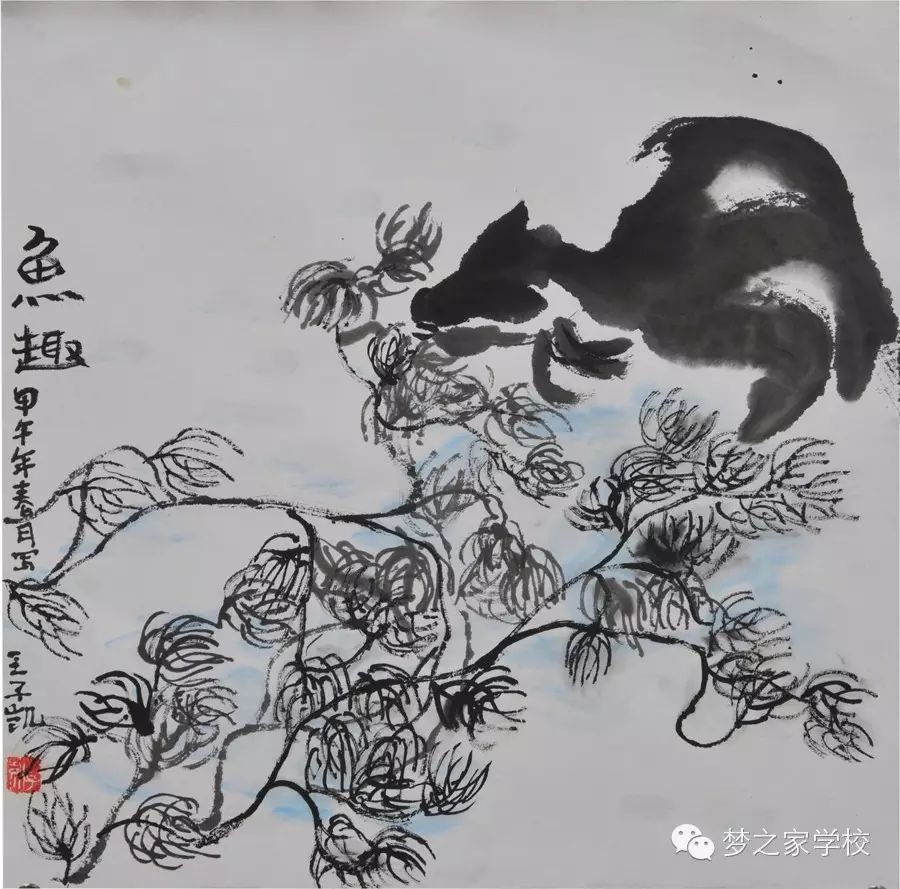 魚趣
甲午年春月写
王子凯
梦之家学校